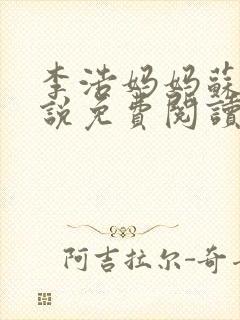 李浩妈妈蘇
說免費閱讀
阿吉拉尔-奇